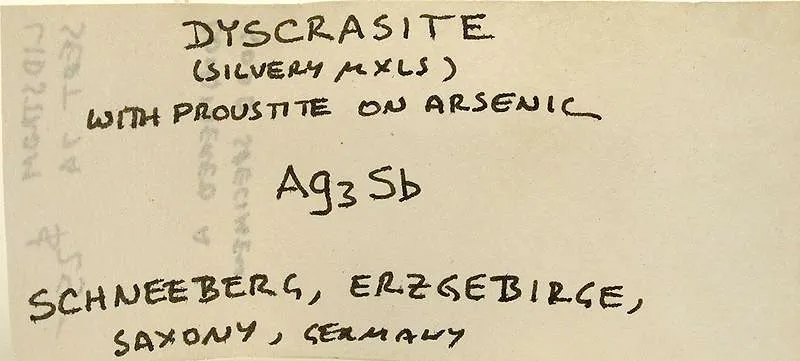 DYSCRASITE
(SILVERY μ XLS)
WITH PROUSTITE ON ARSENIC
Ag3Sb
SCHNEEBERG, ERZGEBIRGE,
SAXONY, GERMANY
LIDSTROM
SEPT 74